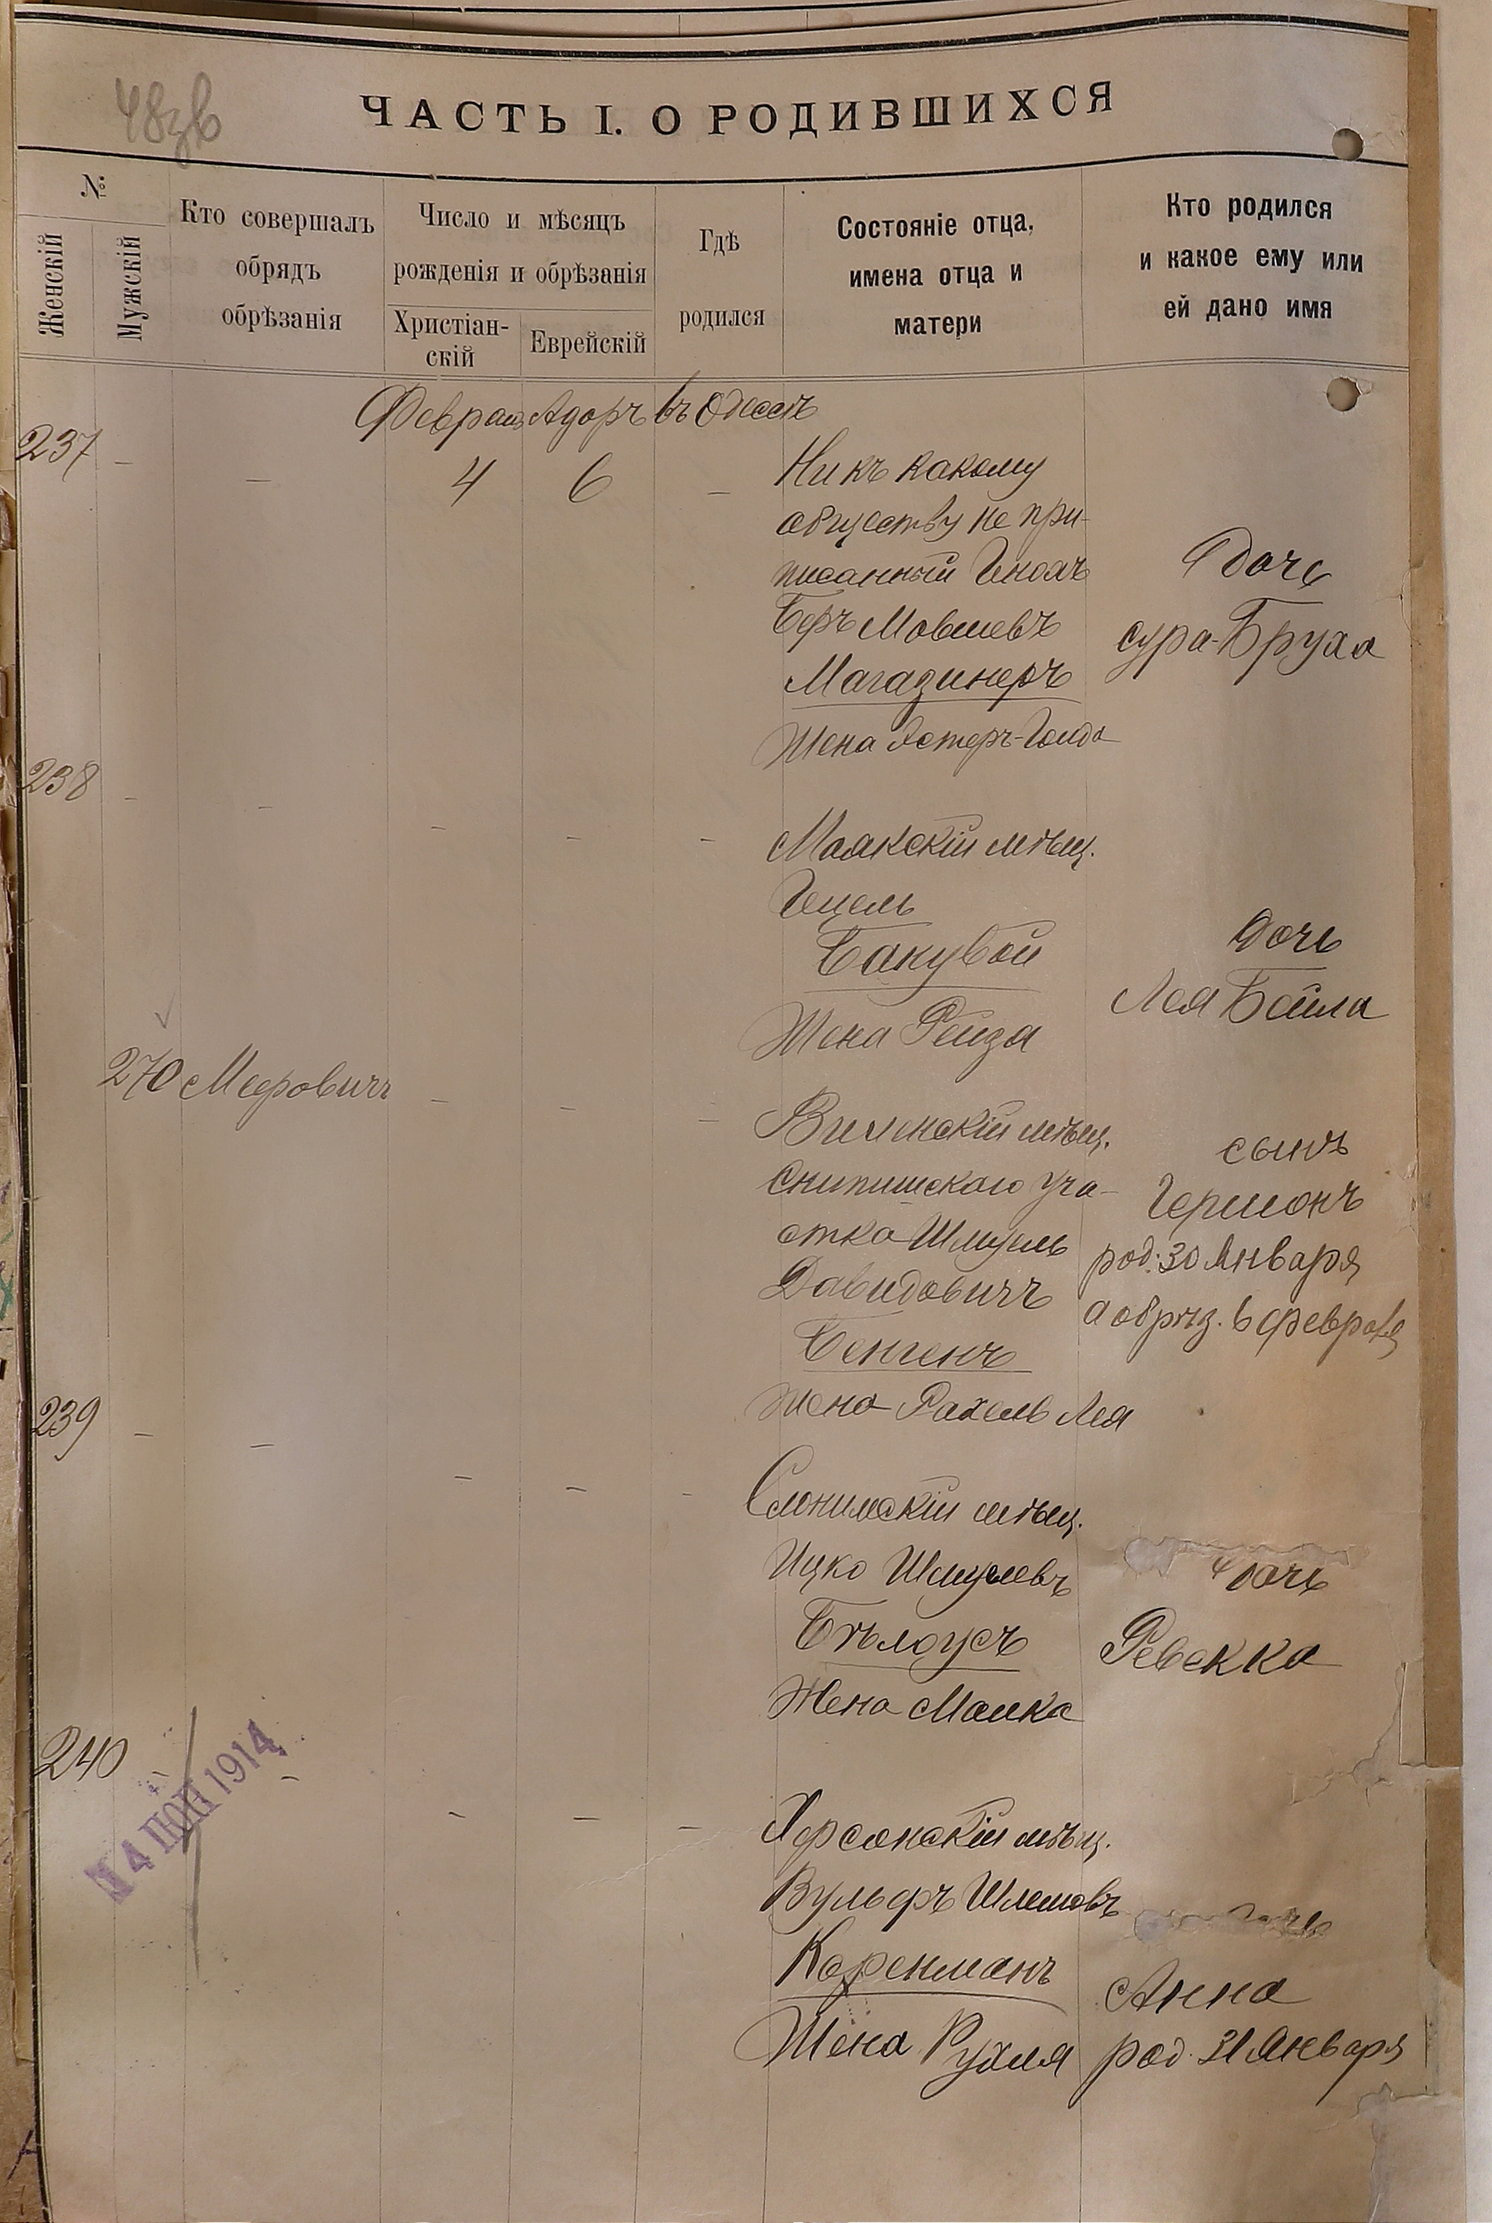 48зв
ЧАСТЬ I. О РОДИВШИХСЯ
№
Женскій
Мужскій
Кто совершалъ
обрядъ
обрѣзанія
Число и мѣсяцъ
рожденія и обрѣзанія
Христіан-
скій
Еврейскій
Гдѣ
родился
Состояніе отца,
имена отца и
матери
Кто родился
и какое ему или
ей дано имя
Февраль Адоръ въ Одессѣ
237 – – 4 6 –
Ни къ какому
обществу не при-
писанный Генахъ
Беръ Мовшевъ
Магазинеръ
Жена Эстеръ-Голда
Дочь
Сура-Бруха
238 – – – – –
Маякскій мѣщ.
Гецель
Бакувой
Жена Рейза
Дочь
Лея Бейла
270 Мееровичъ – – –
Виленскій мѣщ.
Снипишскаго уча-
стка Шмуель
Давидовичъ
Бенгенъ
Жена Рахель Лея
сынъ
Гершонъ
род: 30 Января
а обрѣз. 6 февраля
239 – – – – –
Слонимскій мѣщ.
Ицко Шмулевъ
Бѣлоусъ
Жена Малка
Дочь
Ревекка
240 – – – – –
Херсонскій мѣщ.
Вульфъ Шлемовъ
Коренманъ
Жена Рухля
Дочь
Анна
род. 31 Января
1914